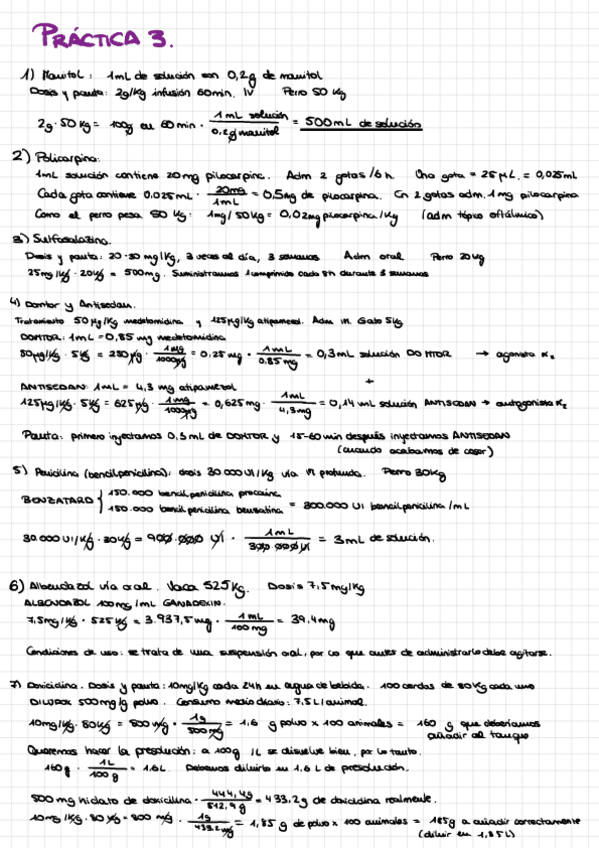 PRÁCTICA 3.
1) Manitol: 1mL de solución son 0,2g de manitol
Dosis y pauta: 2g/kg infusión 60min. IV Perro 50 kg
2g · 50 kg = 100g en 60 min · 1 mL solución / 0,2g manitol = 500 mL de solución
2) Pilocarpina:
1mL solución contiene 20mg pilocarpina. Adm 2 gotas /6 h. Una gota = 25 µL = 0,025mL
Cada gota contiene 0,025 mL · 20mg / 1 mL = 0,5mg de pilocarpina. En 2 gotas adm. 1 mg pilocarpina
Como el perro pesa 50 kg: 1mg / 50kg = 0,02mg pilocarpina /kg (adm tópico oftálmico)
3) Sulfasalazina.
Dosis y pauta: 20-30 mg/kg, 3 veces al día, 3 semanas Adm oral Perro 20kg
25mg/kg · 20kg = 500mg. Suministramos 1 comprimido cada 8h durante 3 semanas
4) Domtor y Antisedan.
Tratamiento 50 µg/kg medetomidina y 125µg/kg atipamezol. Adm IM. Gato 5kg
DOMTOR: 1mL = 0,85 mg medetomidina
50µg/kg · 5kg = 250 µg · 1mg / 1000µg = 0,25 mg · 1mL / 0,85 mg = 0,3 mL solución DOMTOR → agonista α2
+
ANTISEDAN: 1mL = 4,3 mg atipamezol
125µg/kg · 5kg = 625µg · 1mg / 1000µg = 0,625mg · 1mL / 4,3mg = 0,14 mL solución ANTISEDAN → antagonista α2
Pauta: primero inyectamos 0,3 mL de DOMTOR y 15-60 min después inyectamos ANTISEDAN
(cuando acabamos de coser)
5) Penicilina (bencilpenicilina): dosis 30.000 UI/kg vía IM profunda. Perro 30kg
BENZATARD { 150.000 bencilpenicilina procaína
150.000 bencilpenicilina benzatina = 300.000 UI bencilpenicilina /mL
30.000 UI/kg · 30kg = 900.000 UI · 1 mL / 300.000 UI = 3 mL de solución.
6) Albendazol vía oral. Vaca 525kg. Dosis 7,5mg/kg
ALBENDAZOL 100mg/mL GANADEXIN.
7,5mg/kg · 525 kg = 3.937,5 mg · 1 mL / 100 mg = 39,4mg
Condiciones de uso: se trata de una suspensión oral, por lo que antes de administrarlo debe agitarse.
7) Doxiciclina. Dosis y pauta: 10mg/kg cada 24h en agua de bebida. 100 cerdos de 80kg cada uno
DILUDOX 500mg/g polvo. Consumo medio diario: 7,5L/animal.
10mg/kg · 80kg = 800 mg · 1g / 500 mg = 1,6 g polvo x 100 animales = 160 g que deberíamos
añadir al tanque
Queremos hacer la presolución: a 100g 1L se disuelve bien, por lo tanto.
160g · 1L / 100 g = 1,6L. Debemos diluirlo en 1,6 L de presolución.
500 mg hiclato de doxiciclina · 444,4g / 512,9 g = 433,2g de doxiciclina realmente.
10mg/kg · 80 kg = 800 mg · 1g / 433,2mg = 1,85 g de polvo x 100 animales = 185g a añadir correctamente
(diluir en 1,85L)